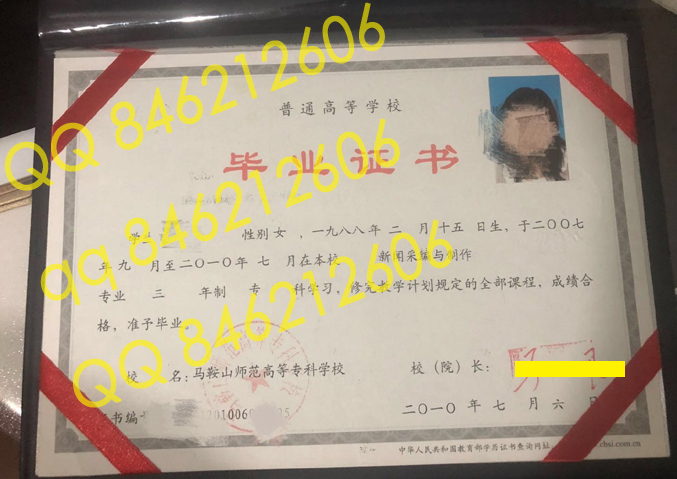 普通高等学校
毕业证书
学生 性别 女 ,一九八八年 二 月 十五 日生,于二〇〇七
年 九 月至二〇一〇年 七 月在本校 新闻采编与制作
专业 三 年制 专 科学习,修完教学计划规定的全部课程,成绩合
格,准予毕业。
校 名:马鞍山师范高等专科学校 校(院)长:
书编
二〇一〇 年 七 月 六 日
中华人民共和国教育部学历证书查询网址 chsi.com.cn
QQ 846212606
qq 846212606
QQ 846212606